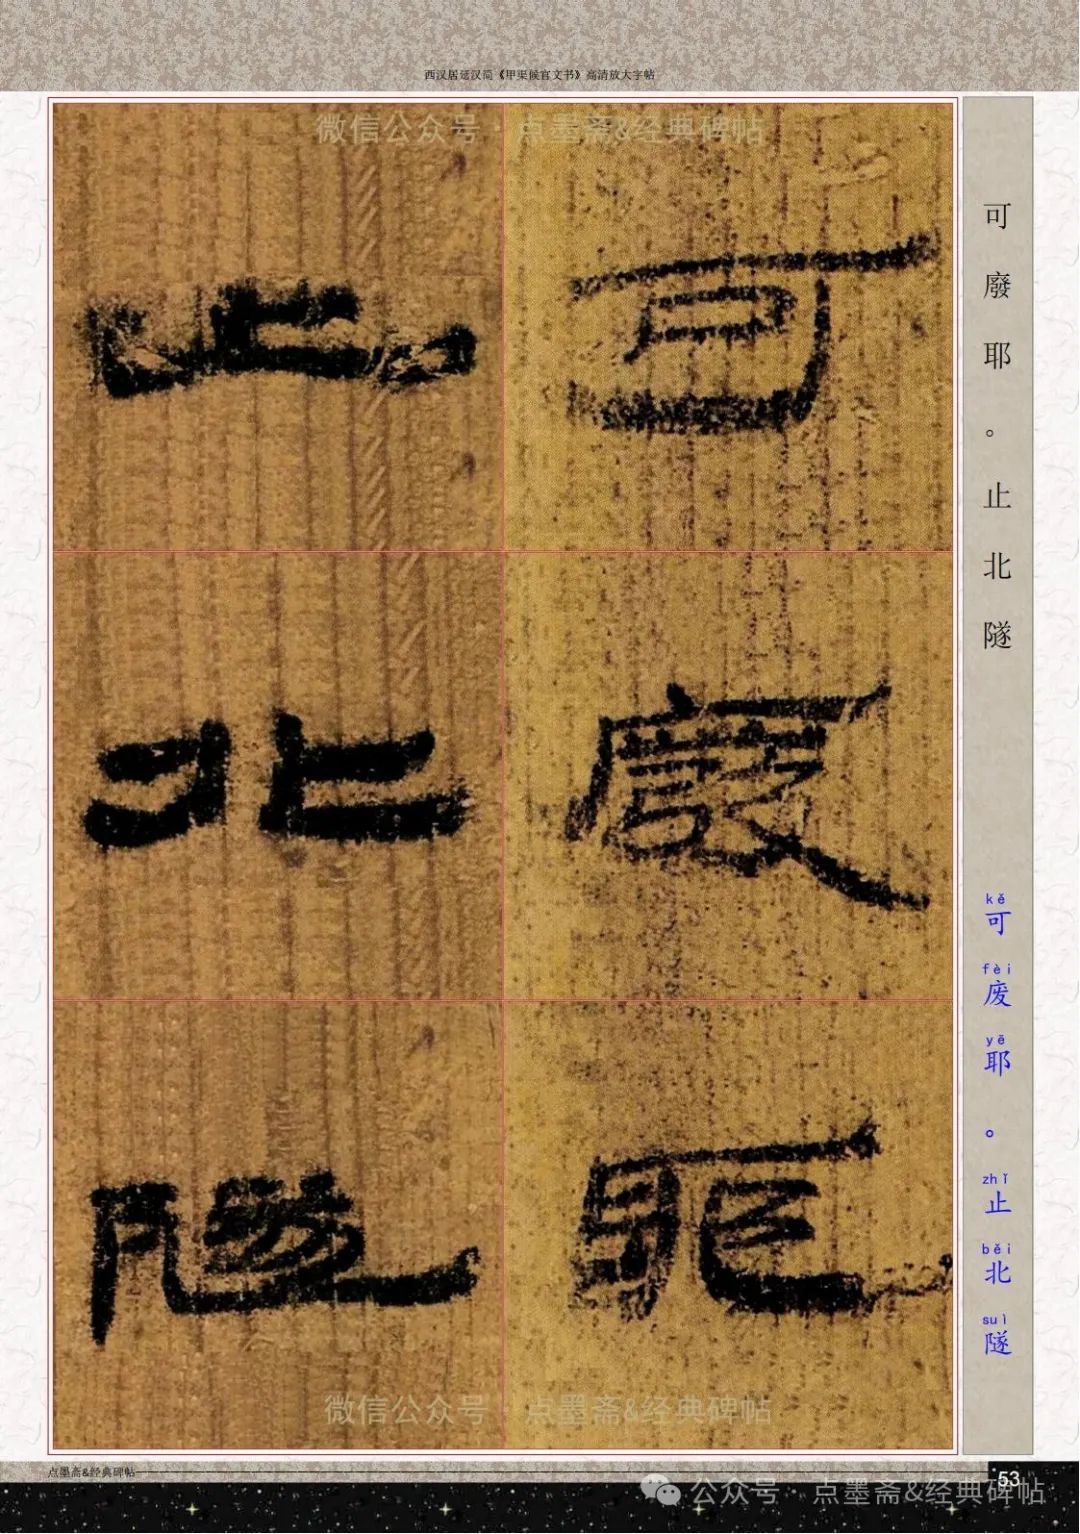 西汉居延汉简《甲渠候官文书》高清放大字帖
微信公众号·点墨斋&经典碑帖
可
廢
耶
止
北
隧
可廢耶。止北隧
kě fèi yē zhǐ běi suì
可废耶。止北隧
微信公众号·点墨斋&经典碑帖
点墨斋&经典碑帖
53
公众号·点墨斋&经典碑帖